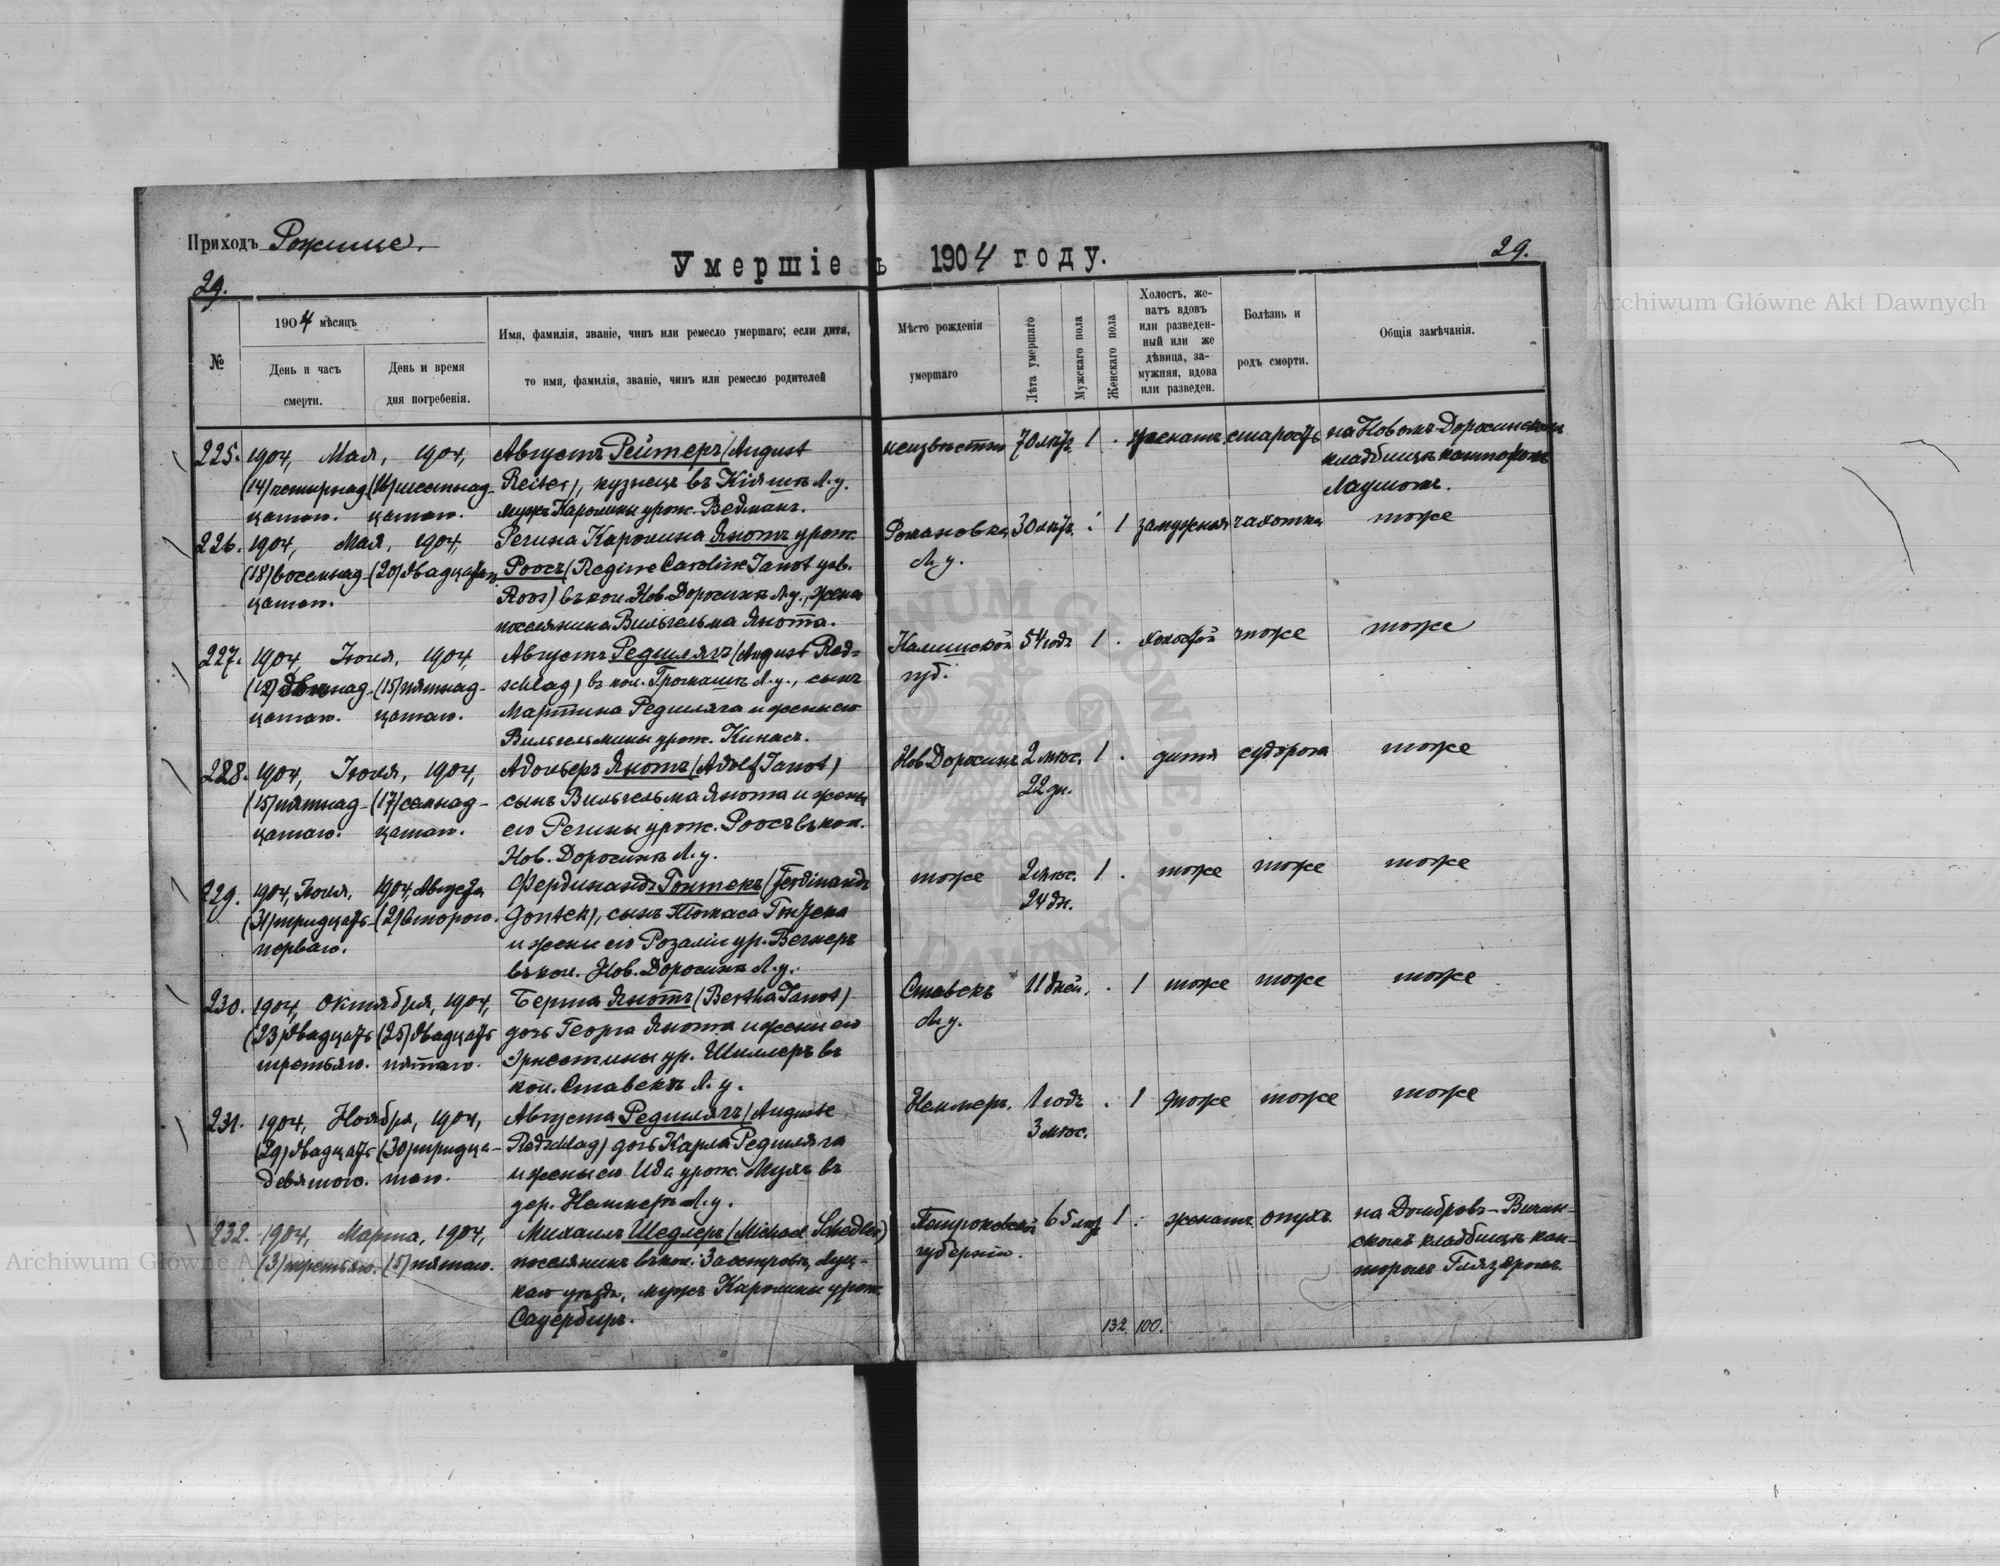 Приходъ Рожище.
29.
29.
Умершіе въ 1904 году.
№
1904 мѣсяцъ
День и часъ смерти.
День и время дня погребенія.
Имя, фамилія, званіе, чинъ или ремесло умершаго; если дитя,
то имя, фамилія, званіе, чинъ или ремесло родителей
Мѣсто рожденія
умершаго
Лѣта умершаго
Мужскаго пола
Женскаго пола
Холостъ, же-
натъ вдовъ
или разведен-
ный или же
дѣвица, за-
мужняя, вдова
или разведен.
Болѣзнь и
родъ смерти.
Общія замѣчанія.
225. 1904, Мая, 1904, Августъ Рейтеръ (August неизвѣстно 70 лѣтъ 1 . женатъ старость на Новомъ-Доросинскомъ
(14) четырнад- (16) шестнад- Reiter), кузнецъ въ Л. у. кладбищѣ канторомъ
цатаго. цатаго. мужъ Каролины урож. Ведманъ. Лаушомъ.
226. 1904, Мая, 1904, Регина Каролина Янотъ урож. Романовка 30 лѣтъ . 1 замужняя чахотка тоже
(18) восемнад- (20) двадцатаго Роосъ (Regine Caroline Janot geb. Л. у.
цатаго. Roos) въ кол. Нов. Доросинѣ Л. у., жена
поселянина Вильгельма Янота.
227. 1904, Іюля, 1904, Августъ Редшлягъ (August Red- Калишской 54 года 1 . холостой тоже тоже
(12) двѣнад- (15) пятнад- schlag) въ кол. Л. у., сынъ губ.
цатаго. цатаго. Мартина Редшляга и жены его
Вильгельмины урож. Кинасъ.
228. 1904, Іюля, 1904, Адольфъ Янотъ (Adolf Janot) Нов. Доросинъ 2 мѣс. 1 . дитя судорога тоже
(15) пятнад- (17) семнад- сынъ Вильгельма Янота и жены 22 дн.
цатаго. цатаго. его Регины урож. Роосъ въ кол.
Нов. Доросинѣ Л. у.
229. 1904, Іюля, 1904, Августа Фердинандъ Гонтекъ (Ferdinand тоже 2 мѣс. 1 . тоже тоже тоже
(31) тридцать (2) второго. Gontek), сынъ Томаса Гонтека 24 дн.
перваго. и жены его Розаліи ур. Вегнеръ
въ кол. Нов. Доросинѣ Л. у.
230. 1904, Октября, 1904, Берта Янотъ (Bertha Janot) Ставекъ 11 дней. . 1 тоже тоже тоже
(23) двадцать (25) двадцать дочь Георга Янота и жены его Л. у.
третьяго. пятаго. Эрнестины ур. Шиллеръ въ
кол. Ставекъ Л. у.
231. 1904, Ноября, 1904, Августа Редшлягъ (Auguste 1 годъ . 1 тоже тоже тоже
(29) двадцать (30) тридца- Redschlag) дочь Карла Редшляга 3 мѣс.
девятого. таго. и жены его Ида урож. въ
дер. Л. у.
232. 1904, Марта, 1904, Михаилъ Шедлеръ (Michael Schedler) Петроковской 65 лѣтъ 1 . женатъ опухъ. на Домбровъ-
(3) третьяго. (5) пятаго. поселянинъ въ кол. Заостровъ, Луц- губерніи. скомъ кладбищѣ кан-
каго уѣзда, мужъ Каролины урож. торомъ
Сауербиръ.
132. 100.
Archiwum Główne Akt Dawnych
Archiwum Główne Akt Dawnych